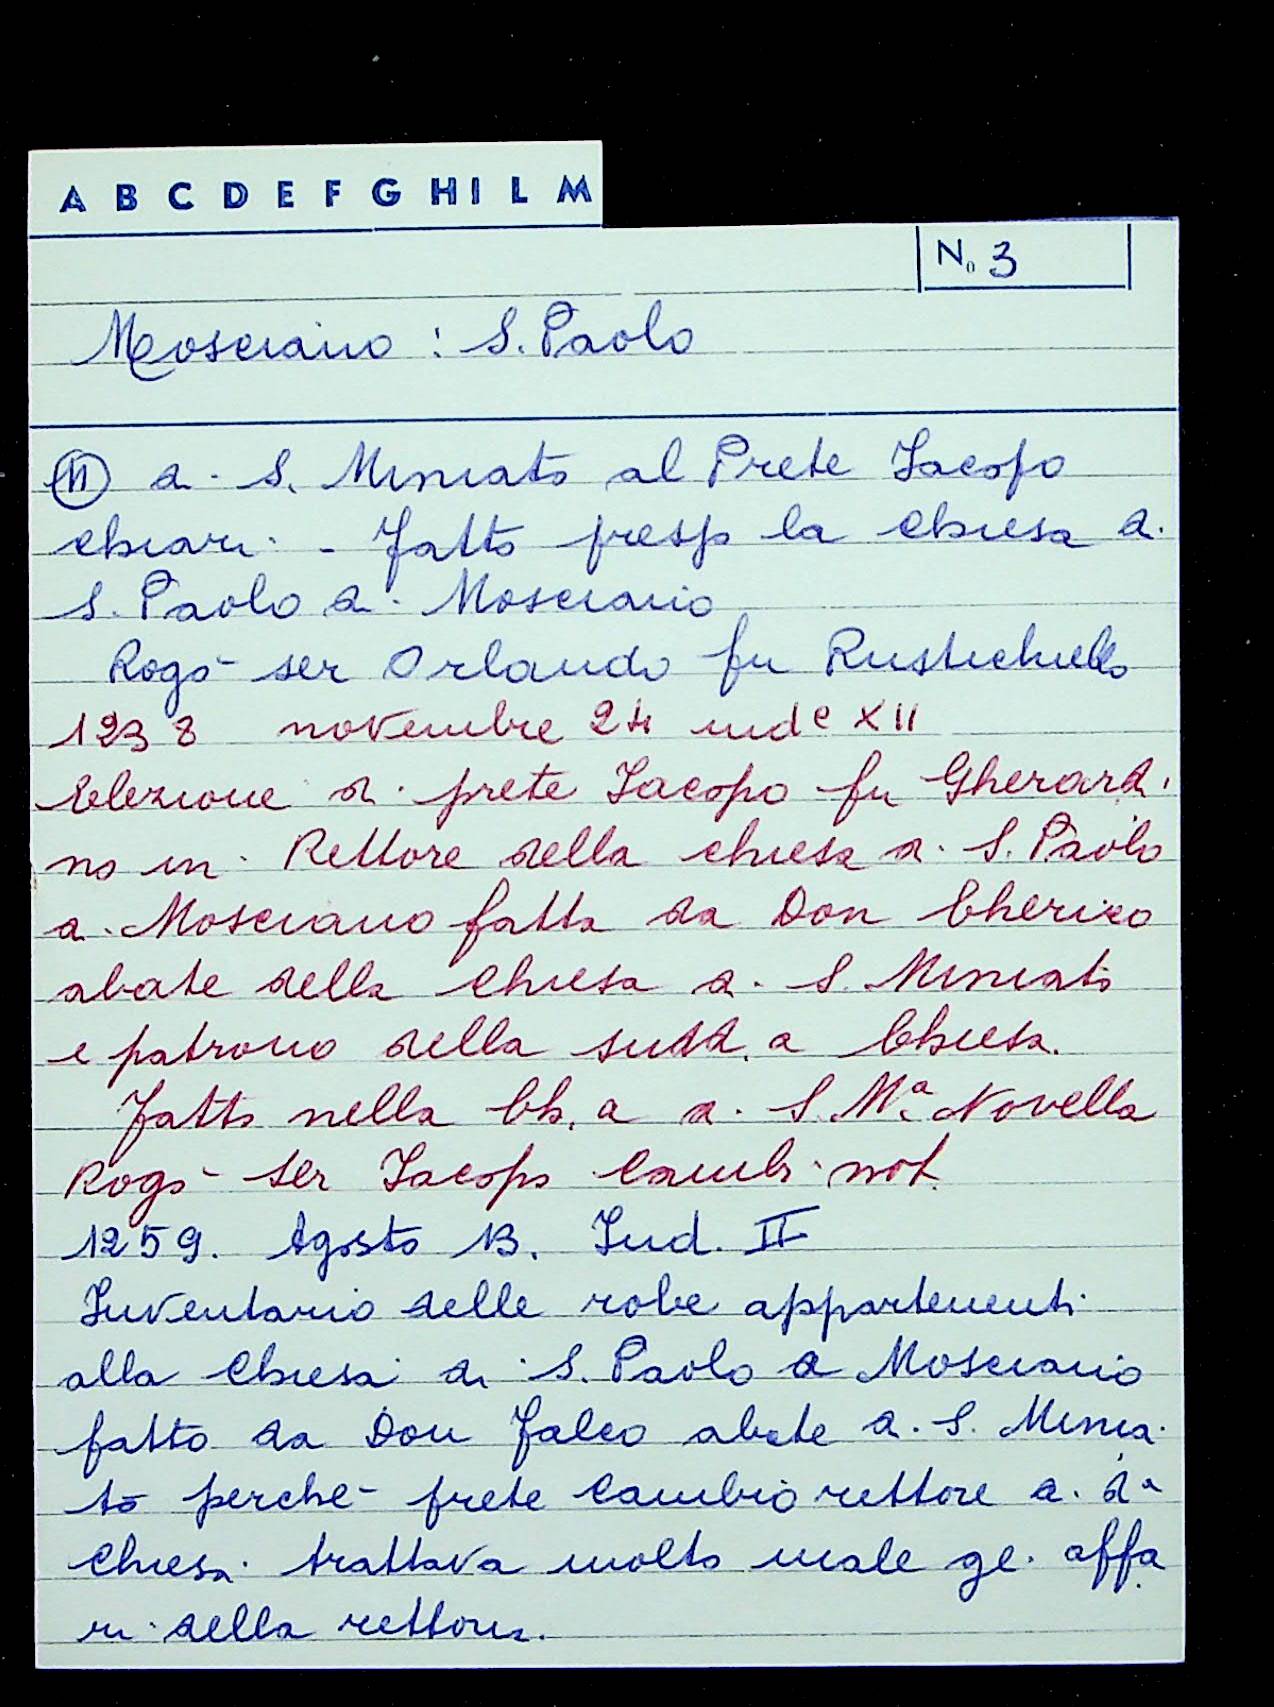 A B C D E F G H I L M
No 3
Mosciano : S. Paolo
di S. Miniato al Prete Jacopo
chiari. - Fatto presso la chiesa di
S. Paolo a Mosciano
Rogò ser Orlando fu Rustichello
1238 novembre 24 inde XII
Elezione di prete Jacopo fu Gherardi
no in Rettore della chiesa di S. Paolo
a Mosciano fatta da Don Cherico
abate della chiesa di S. Miniato
e patrono della sudd.a Chiesa.
Fatto nella Ch.a di S. Ma Novella
Rogò ser Jacopo Cambi not.
1259. Agosto 13. Ind. II
Inventario delle robe appartenenti
alla Chiesa di S. Paolo a Mosciano
fatto da Don Falco abate di S. Minia
to perchè prete Cambio rettore di da
Chiesa trattava molto male gli affa
ri della rettoria.